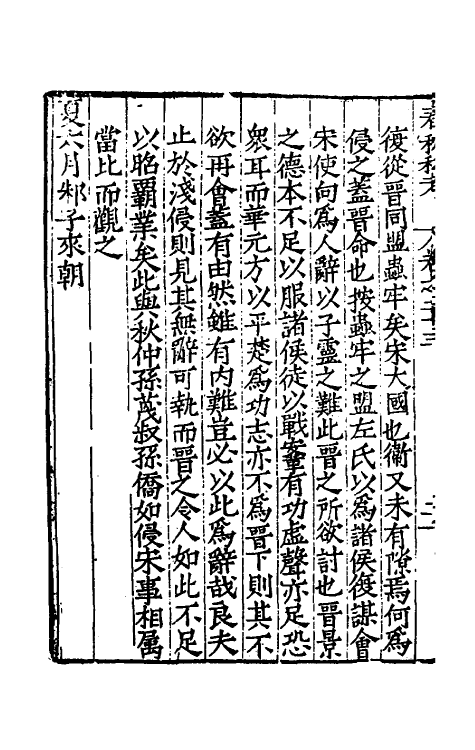 復從晉同盟蟲牢矣宋大國也衞又未有隙焉何爲
侵之蓋晉命也按蟲牢之盟左氏以爲諸侯復謀會
宋使向爲人辭以子靈之難此晉之所欲討也晉景
之德本不足以服諸侯徒以戰鞌有功虚聲亦足恐
衆耳而華元方以平楚爲功志亦不爲晉下則其不
欲再會蓋有由然雖有内難豈必以此爲辭哉良夫
止於淺侵則見其無辭可執而晉之令人如此不足
以昭霸業矣此與秋仲孫蔑叔孫僑如侵宋事相屬
當比而觀之
夏六月邾子來朝